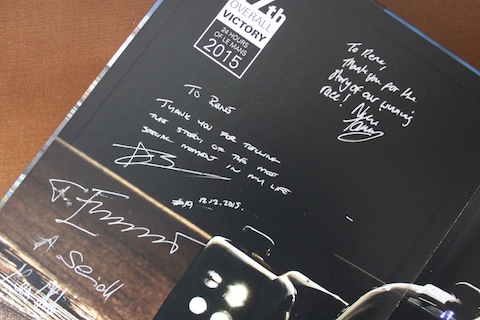 7th
OVERALL
VICTORY
24 HOURS
OF LE MANS
2015
To Rene,
Thank you for the
story of our winning
race! Nick
Tandy
TO RENÉ
THANK YOU FOR TELLING
THE STORY, OF THE MOST
SPECIAL MOMENT IN MY LIFE
#19 12.12.2015.
A. Seidl